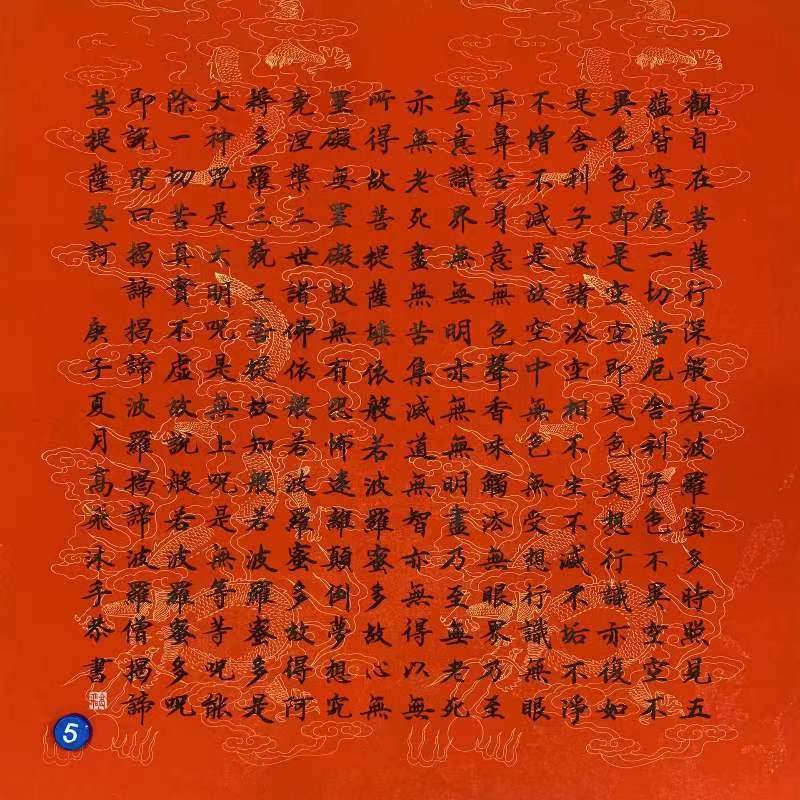 觀自在菩薩行深般若波羅蜜多時照見五
蘊皆空度一切苦厄舍利子色不異空空不
異色色即是空空即是色受想行識亦復如
是舍利子是諸法空相不生不滅不垢不淨
不增不減是故空中無色無受想行識無眼
耳鼻舌身意無色聲香味觸法無眼界乃至
無意識界無無明亦無無明盡乃至無老死
亦無老死盡無苦集滅道無智亦無得以無
所得故菩提薩埵依般若波羅蜜多故心無
罣礙無罣礙故無有恐怖遠離顛倒夢想究
竟涅槃三世諸佛依般若波羅蜜多故得阿
耨多羅三藐三菩提故知般若波羅蜜多是
大神咒是大明咒是無上咒是無等等咒能
除一切苦真實不虛故說般若波羅蜜多咒
即說咒曰揭諦揭諦波羅揭諦波羅僧揭諦
菩提薩婆訶 庚子夏月高飛沐手恭書
5